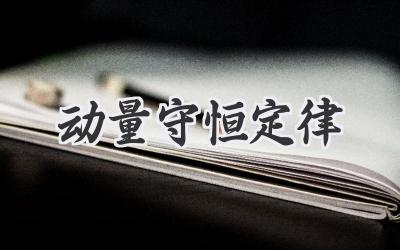 动量守恒定律